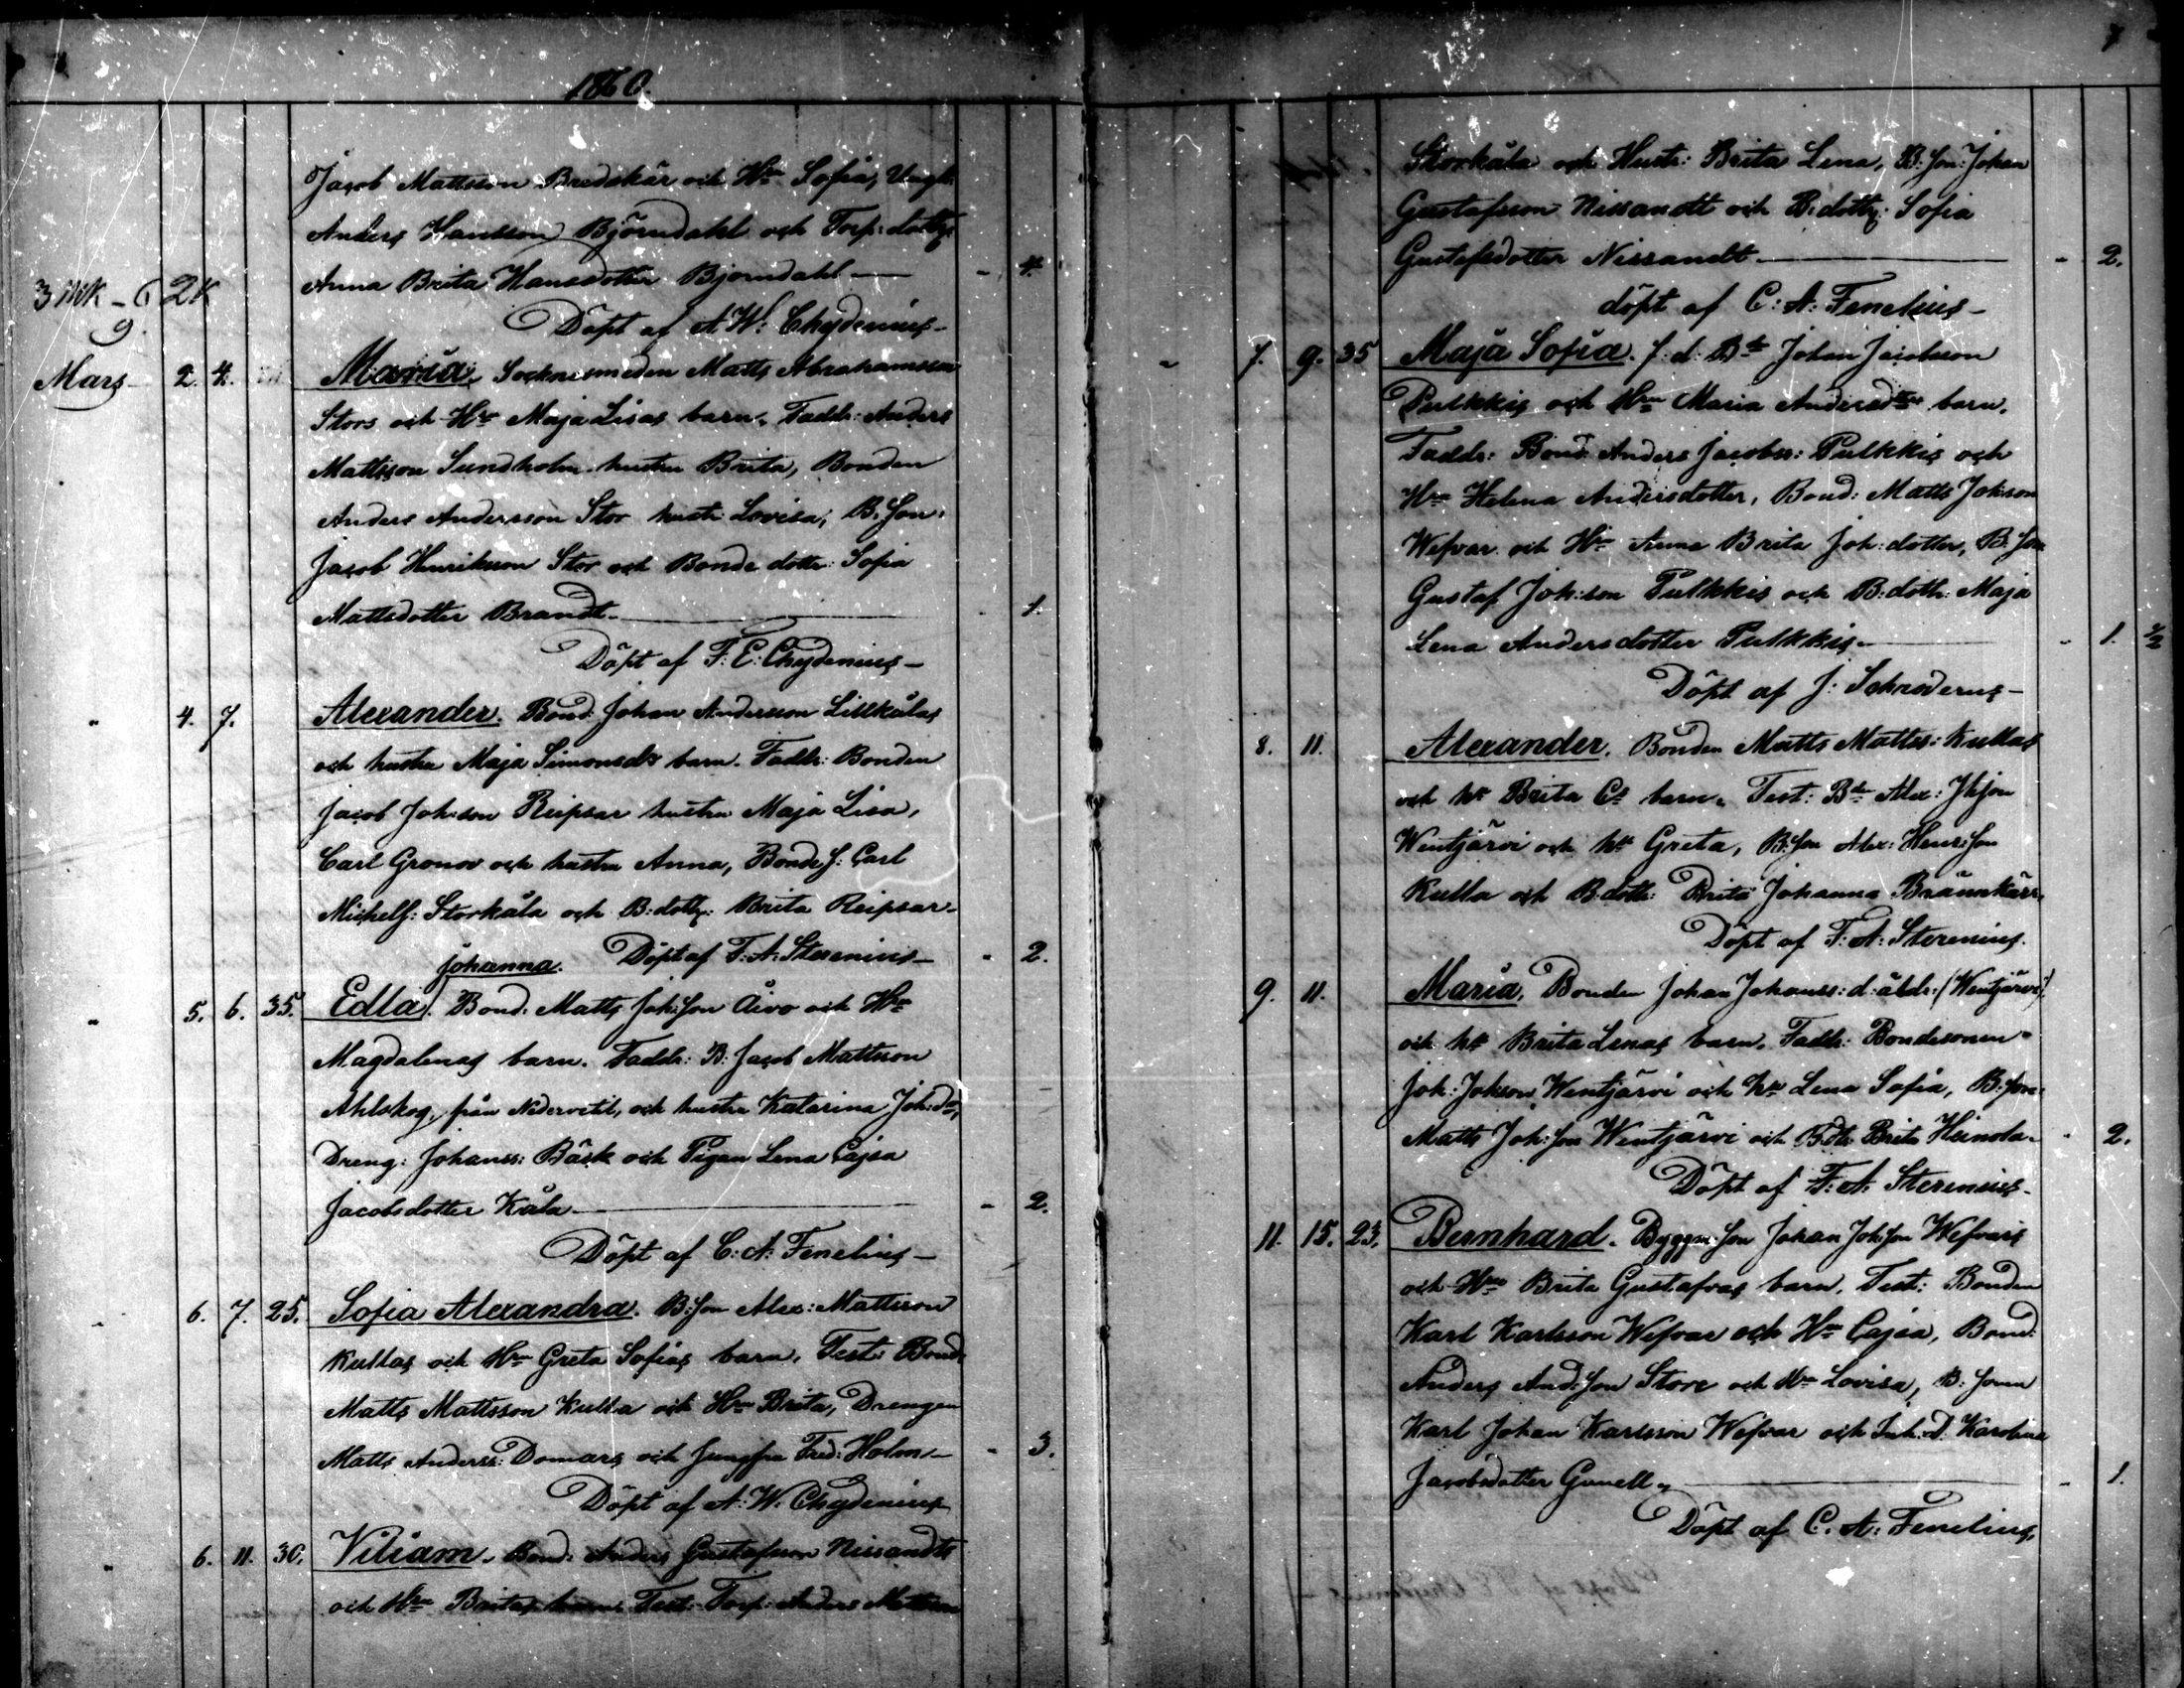 1860.
Jacob Mattsson Bredskär och Hu Sofia, Ungk.
Anders Hansson Björndahl och Torp: dottr
Anna Brita Hansdotter Björndahl — - 4.
3 Mk - 6 2 K
9.
Döpt af A. W: Chydenius -
Mars 2. 4. Maria. Socknesmeden Matts Abrahamsson
Stors och Hu Maja Lisas barn. Faddr: Anders
Mattsson Sundholm hustru Brita, Bonden
Anders Andersson Stor hustr: Lovisa, B. Son:
Jacob Henriksson Stor och Bonde dottr: Sofia
Mattsdotter Brandt. — - 1.
Döpt af F. E: Chydenius -
" 4. 7. Alexander. Bond: Johan Andersson Lillkålas
och hustru Maja Simonsdr barn. Faddr: Bonden
Jacob Joh:son Reipsar hustru Maja Lisa,
Carl Gronov och hustru Anna, Bonde s: Carl
Michels: Storkåla och B: dottr: Brita Reipsar -
Döpt af F: A: Stenius - - 2.
Johanna.
" 5. 6. 35. Edla. Bond. Matts Joh:son Åivo och Hu
Magdalenas barn. Faddr: B: Jacob Mattsson
Ahlskog, från Nedervetil, och hustru Katarina Joh:dr,
Dreng: Johanss: Bäck och Pigan Lena Cajsa
Jacobsdotter Kåla — - 2.
Döpt af C: A: Fenelius -
" 6. 7. 25. Sofia Alexandra. B: son Alex: Mattsson
Kullas och Hu Greta Sofias barn, Test: Bond:
Matts Mattsson Kulla och Hu Brita, Drengen
Matts Anderss: Domars och Jungfru Fred: Holm - - 3.
Döpt af A: W. Chydenius
" 6. 11. 30. Viliam. Bond: Anders Gustafsson Nissandts
och Hu Britas barn Test: Torp: Anders Mattsson
Storkåla och Hustr: Brita Lena, B: son: Johan
Gustafsson Nissandt och B: dottr: Sofia
Gustafsdotter Nissandt — - 2.
döpt af C: A: Fenelius -
" 7. 9. 35 Maja Sofia. f: d: Bde Johan Jacobsson
Pulkkis och Hu Maria Andersdtrs barn.
Faddr: Bond: Anders Jacobss: Pulkkis och
Hu Helena Andersdotter, Bond: Matts Johson
Wefvar och Hu Anna Brita Joh: dotter, B: son
Gustaf Joh:son Pulkkis och B: dottr: Maja
Lena Andersdotter Pulkkis — - 1. 1/2
Döpt af J: Schroderus -
8. 11. Alexander. Bonden Matts Matts: Kullas
och hu Brita Cs barn. Test: Bde Alex: Jhson
Wentjärvi och hu Greta, B: son Alex: Henr:son
Kulla och B: dottr: Brita Johanna Brännkärr,
Döpt af F. A: Stenius.
9. 11. Maria. Bonden Johan Johanss: d: äldr: (Wentjärvi)
och hu Brita Lenas barn. Faddr: Bondesonen
Joh: Johson Wentjärvi och hu Lena Sofia, B: son:
Matts Joh: son Wentjärvi och Bdtr Brita Heinola - - 2.
Döpt af F: A. Stenius -
11. 15. 23. Bernhard. Byggm: son Johan Joh:son Wefvars
och Hu Brita Gustafvas barn. Test: Bonden
Karl Karlsson Wefvar och Hu Cajsa, Bond:
Anders And:son Store och Hu Lovisa, B: sonen
Karl Johan Karlsson Wefvar och Inh: D. Karolina
Jacobsdotter Gunell — - 1.
Döpt af C. A: Fenelius,